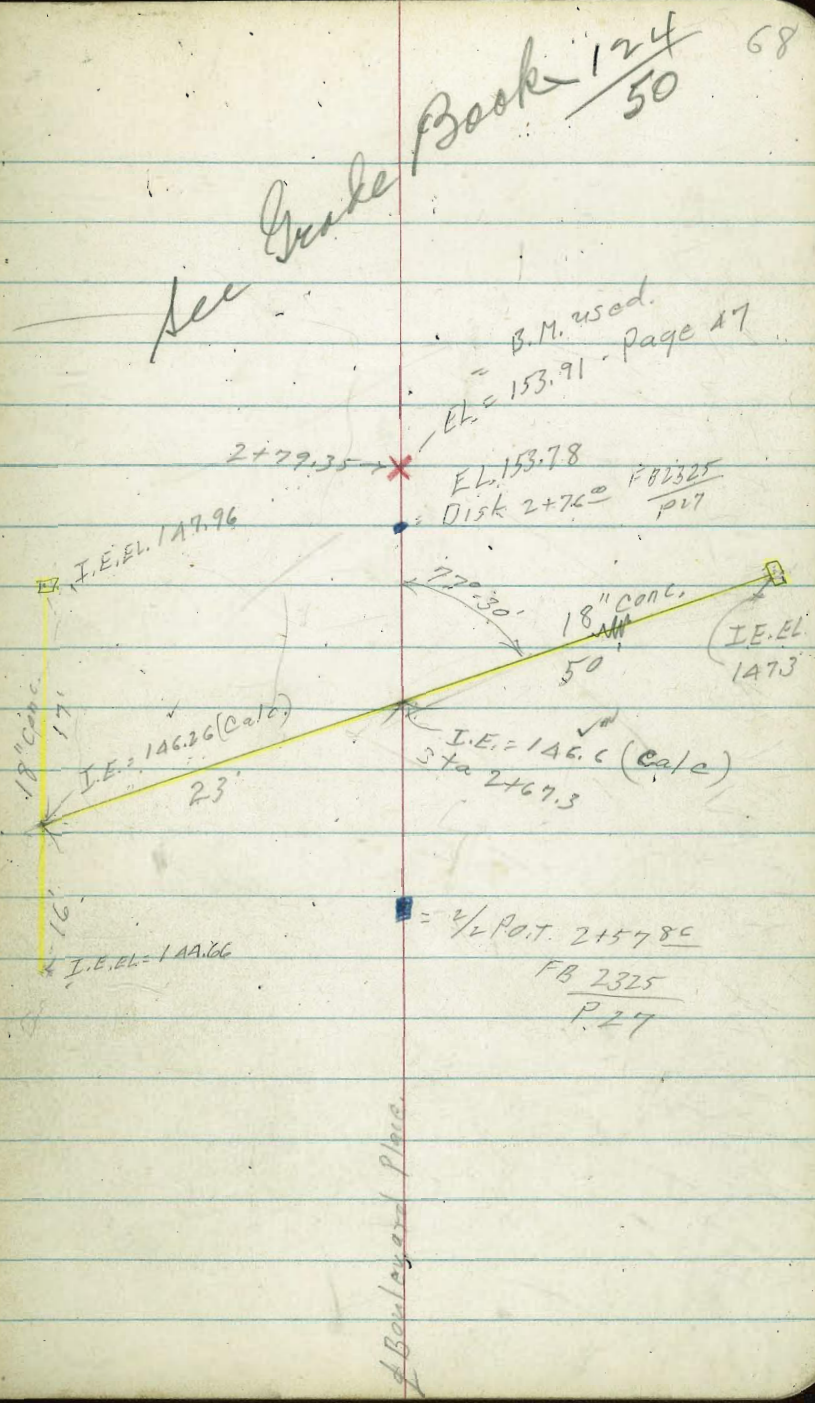 68
See Grade Book 124/50
B.M. used.
EL. = 153.91 - Page 47
2+79.35→
EL. 153.78
= Disk 2+76.00 FB2325/P27
I.E.EL. 147.96
77°-30'
18" conc.
50'
I.E.EL.
147.3
18" conc.
17'
I.E. = 146.26 (Calc.)
23'
I.E. = 146.6 (Calc)
Sta 2+67.3
16'
I.E.EL = 144.66
= 2/2 P.O.T. 2+57
FB 2325
P.27
Boulevard Place.